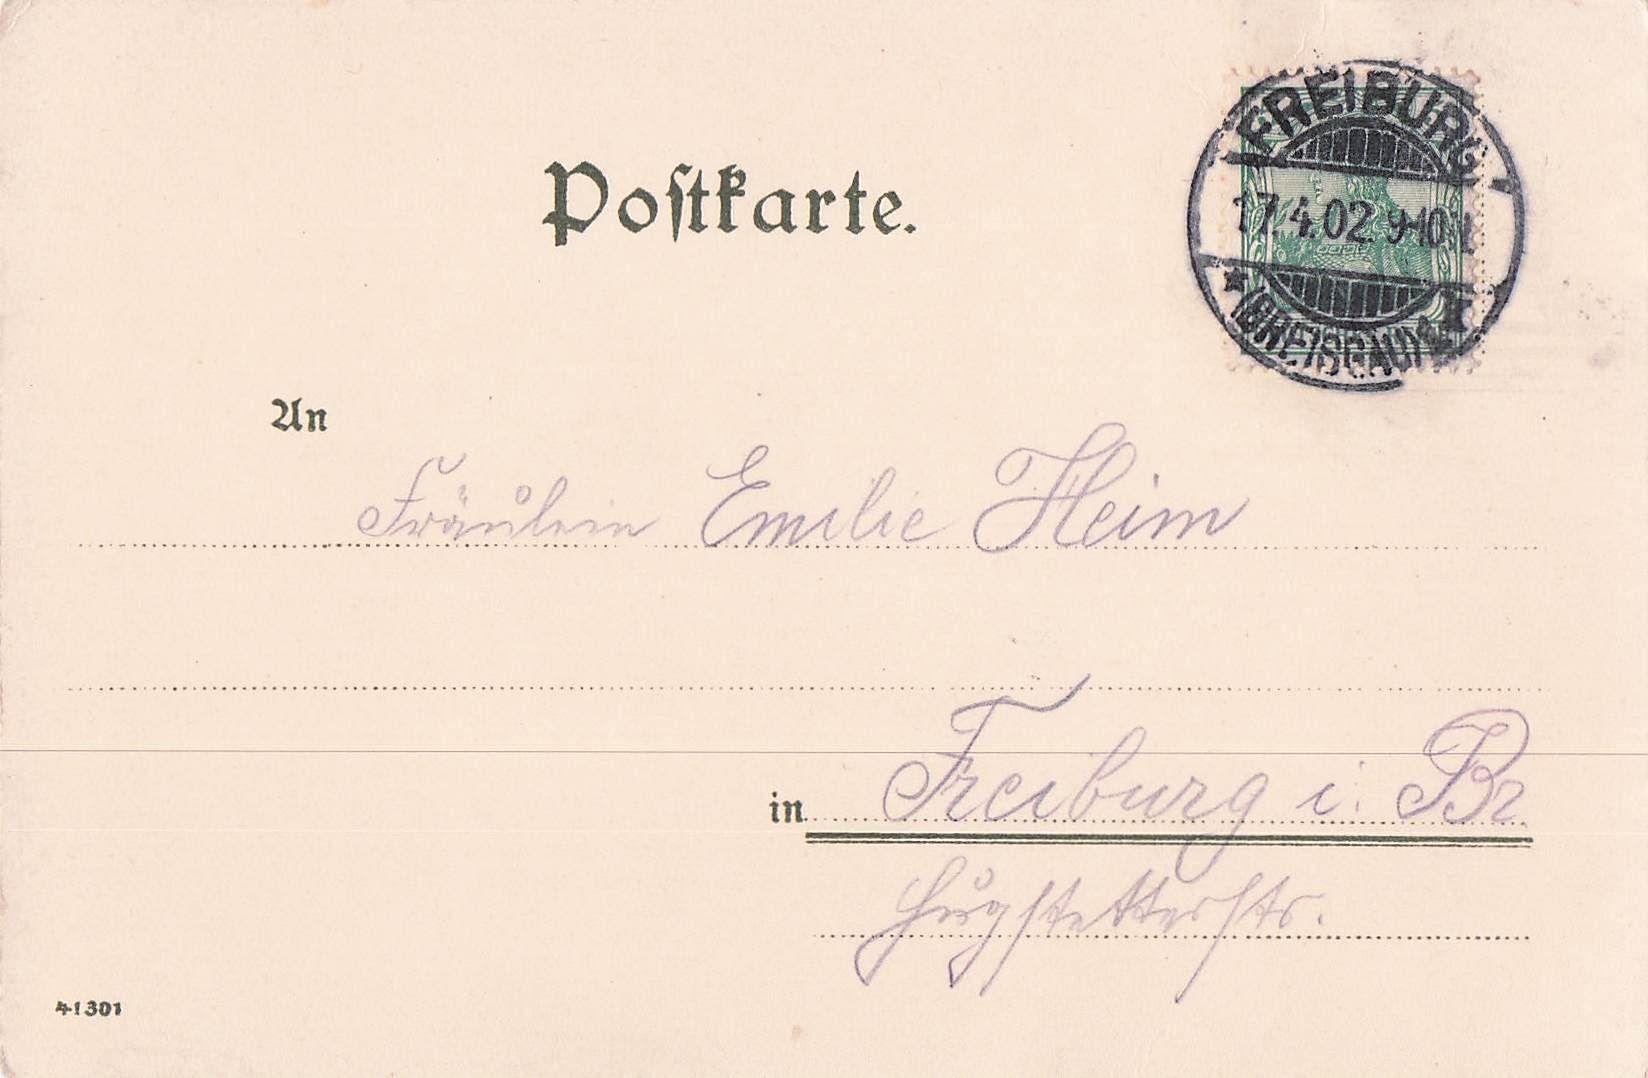 Postkarte.
FREIBURG
17.4.02 9-10V
* (BREISGAU)
An
Fräulein Emilie Heim
in Freiburg i. Br
Hugstetterstr.
41301